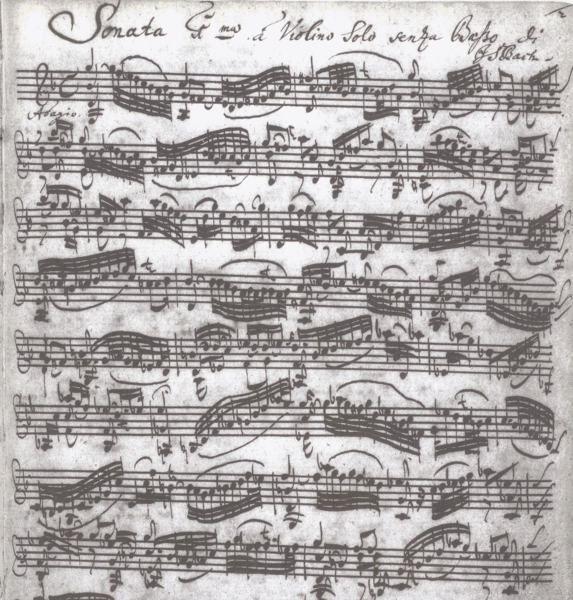 Sonata 1ma à Violino Solo senza Basso di
JSBach.
Adagio.